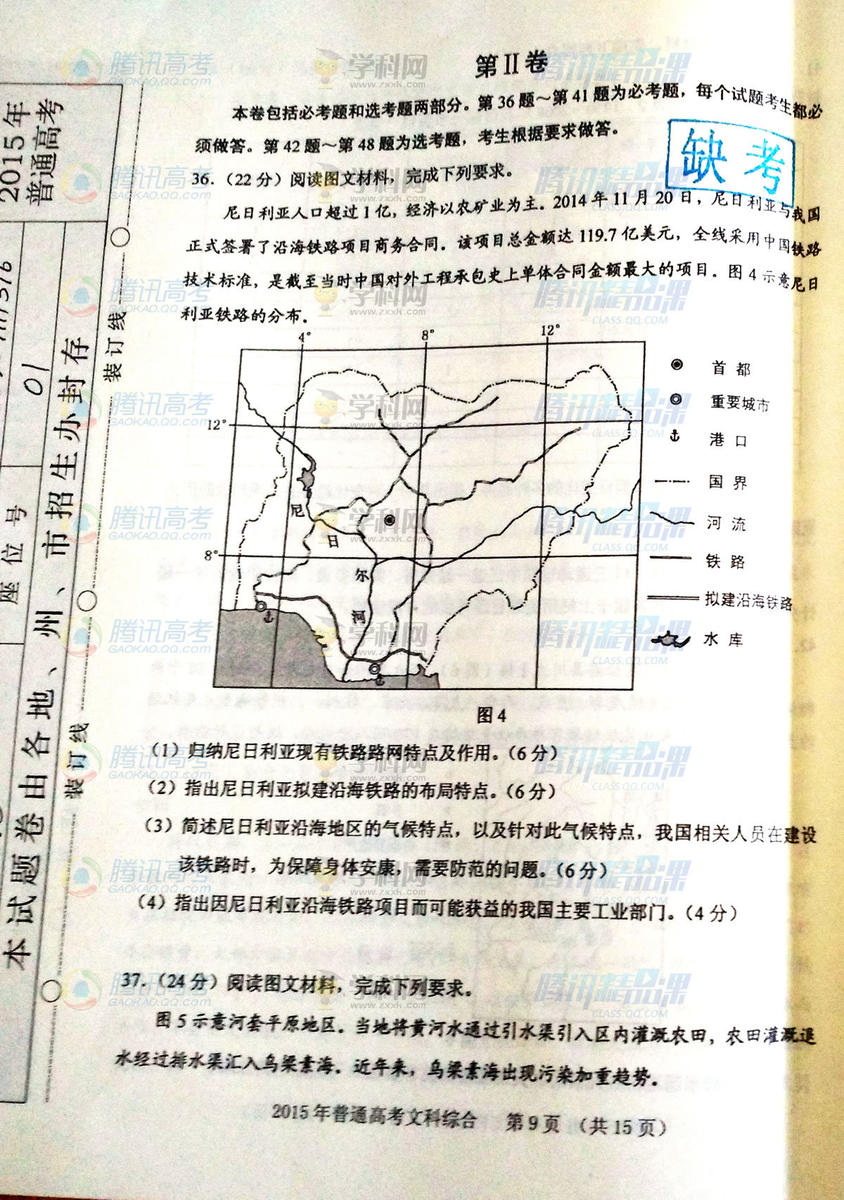 第Ⅱ卷
本卷包括必考题和选考题两部分。第36题～第41题为必考题，每个试题考生都必
须做答。第42题～第48题为选考题，考生根据要求做答。
缺考
36.（22分）阅读图文材料，完成下列要求。
尼日利亚人口超过1亿，经济以农矿业为主。2014年11月20日，尼日利亚与我国
正式签署了沿海铁路项目商务合同。该项目总金额达119.7亿美元，全线采用中国铁路
技术标准，是截至当时中国对外工程承包史上单体合同金额最大的项目。图4示意尼日
利亚铁路的分布。
4° 8° 12°
12°
8°
尼
日
尔
河
首都
重要城市
港口
国界
河流
铁路
拟建沿海铁路
水库
图4
（1）归纳尼日利亚现有铁路路网特点及作用。（6分）
（2）指出尼日利亚拟建沿海铁路的布局特点。（6分）
（3）简述尼日利亚沿海地区的气候特点，以及针对此气候特点，我国相关人员在建设
该铁路时，为保障身体安康，需要防范的问题。（6分）
（4）指出因尼日利亚沿海铁路项目而可能获益的我国主要工业部门。（4分）
37.（24分）阅读图文材料，完成下列要求。
图5示意河套平原地区。当地将黄河水通过引水渠引入区内灌溉农田，农田灌溉退
水经过排水渠汇入乌梁素海。近年来，乌梁素海出现污染加重趋势。
2015年普通高考文科综合 第9页 （共15页）
2015年
普通高考
座位号
01
本试题卷由各地、州、市招生办封存
装订线
装订线
腾讯高考
GAOKAO.QQ.COM
学科网
www.zxxk.com
腾讯精品课
CLASS.QQ.COM